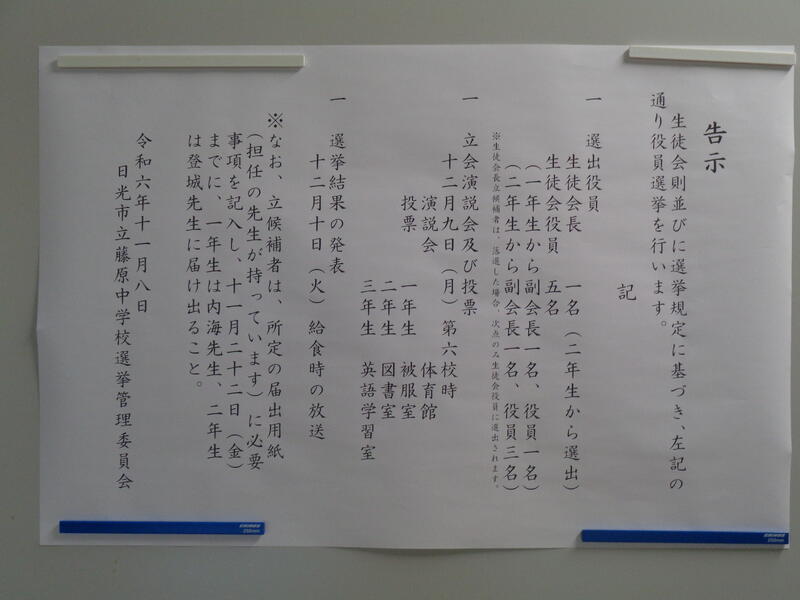 告示
生徒会則並びに選挙規定に基づき、左記の
通り役員選挙を行います。
記
一 選出役員
生徒会長 一名（二年生から選出）
生徒会役員 五名
（一年生から副会長一名、役員一名）
（二年生から副会長一名、役員三名）
※生徒会長立候補者は、落選した場合、次点のみ生徒会役員に選出されます。
一 立会演説会及び投票
十二月九日（月）第六校時
演説会 体育館
投票 一年生 被服室
二年生 図書室
三年生 英語学習室
一 選挙結果の発表
十二月十日（火）給食時の放送
※なお、立候補者は、所定の届出用紙
（担任の先生が持っています）に必要
事項を記入し、十一月二十二日（金）
までに、一年生は内海先生、二年生
は登城先生に届け出ること。
令和六年十一月八日
日光市立藤原中学校選挙管理委員会